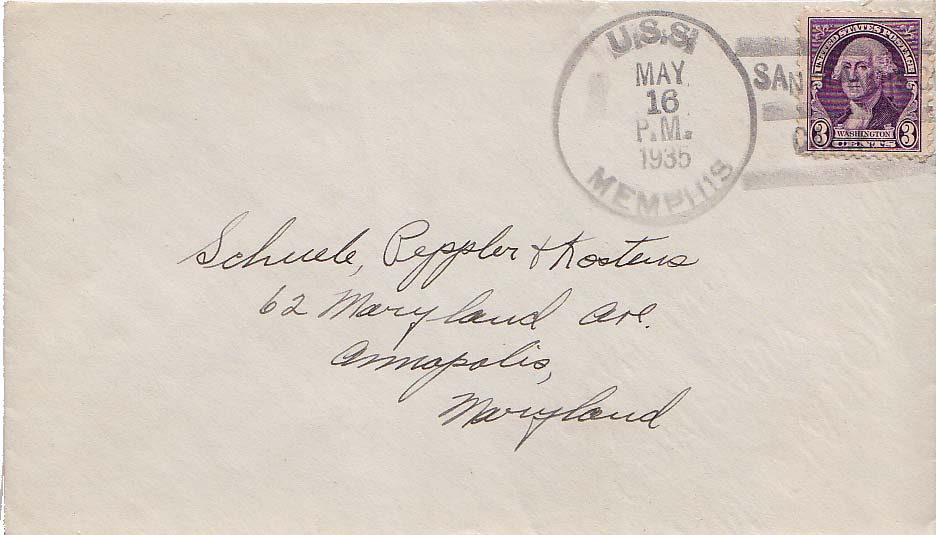 U.S.S.
MAY
16
P.M.
1935
MEMPHIS
SAN
UNITED STATES POSTAGE
3 WASHINGTON 3
CENTS
Schuele, Peppler & Kostens
62 Maryland Ave.
Annapolis,
Maryland